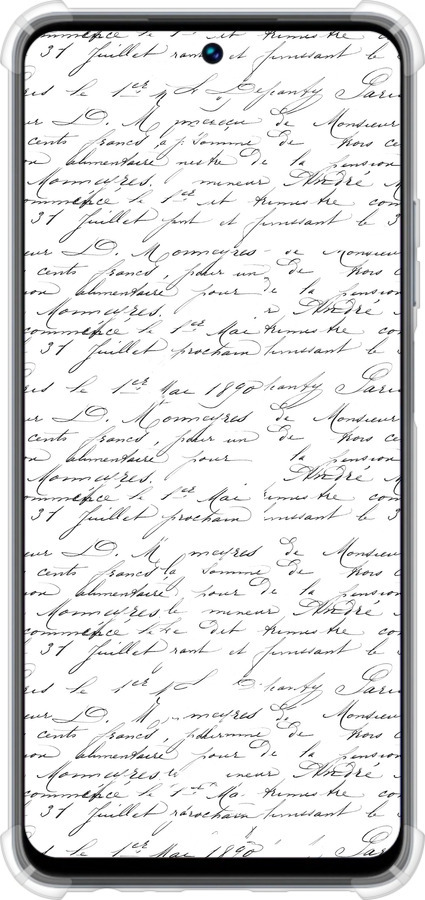 commence le 1er et trimestre com
31 Juillet et finissant le
ris le 1er Paris
eur D. M de Monsieur
cents francs, Somme de trois ce
on alimentaire de la pension
Monmayres. mineur André
commence le 1er et trimestre com
31 Juillet et finissant le 3
eur D. Monmayres de Monsieur
cents francs, pour un de trois c
on alimentaire pour la pension
Monmayres. André
commence le 1er Mai trimestre co
31 Juillet prochain finissant le
ris le 1er Mai 1890 Paris
eur D. Monmayres de Monsieur
cents francs, pour un de trois ce
on alimentaire pour la pension
Monmayres. André
commence le 1er Mai trimestre com
31 Juillet prochain inissant le 3
eur D. M mayres de Monsieur
cents francs la Somme de trois c
on alimentaire, pour de la pension
Monmayres le mineur André
commence le dit trimestre co
31 Juillet et finissant le
ris le 1er Paris
eur D. M mayres de Monsieur
cents francs, de trois ce
on alimentaire pour de la pension
Monmayres ineur André
commence le 1er Ma trimestre com
31 Juillet finissant le 3
le 1er Mai 1890 Pa